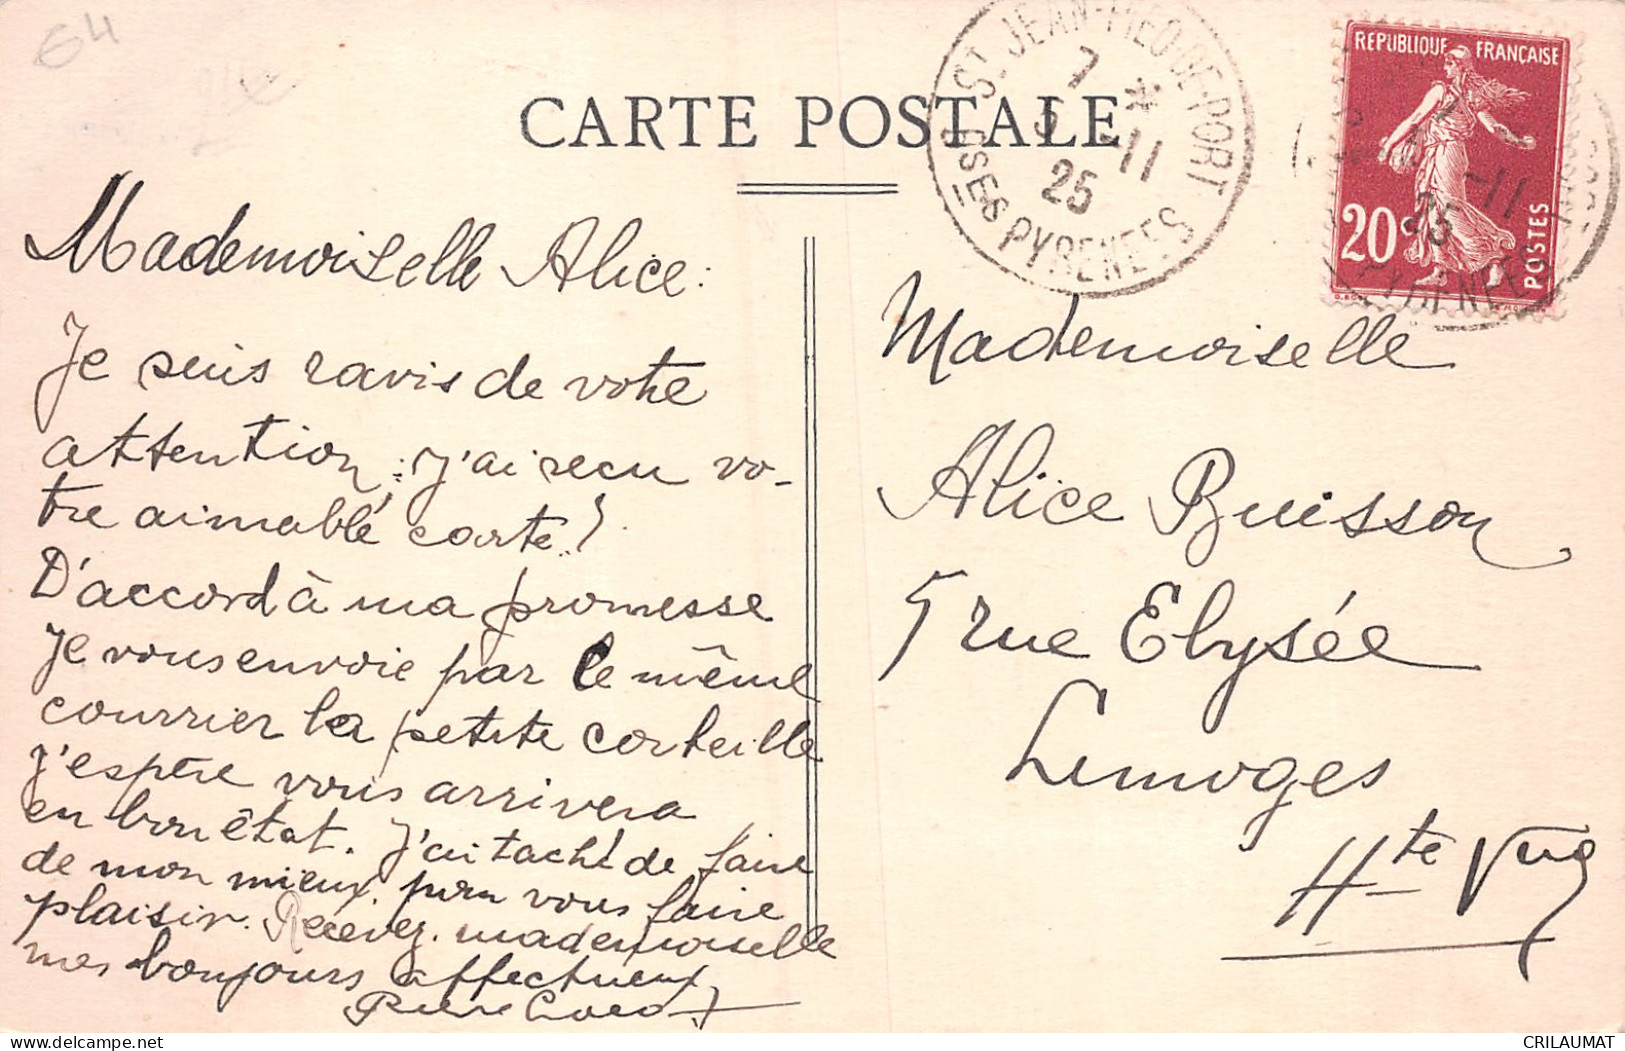 64
CARTE POSTALE
ST JEAN-PIED-DE-PORT
7 *
5 -11
25
BSES PYRENEES
REPUBLIQUE FRANÇAISE
20
POSTES
-11
25
PYRENEES
Mademoiselle Alice :
Je suis ravis de votre
attention ; j'ai recu vo-
tre aimablé carte !
D'accord à ma promesse
Je vous envoie par le même
courrier la petite corbeille
J'espère vous arrivera
en bon êtat. J'ai taché de faire
de mon mieux, pour vous faire
plaisir. Recevez. mademoiselle
mes bonjours affectueux
Pierre
Mademoiselle
Alice Buisson
5 rue Elysée
Limoges
Hte Vne
Delcampe.net
CRILAUMAT